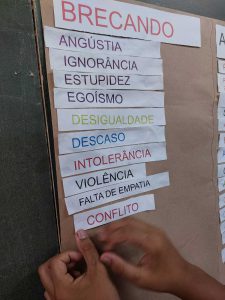 BRECANDO
ANGÚSTIA
IGNORÂNCIA
ESTUPIDEZ
EGOÍSMO
DESIGUALDADE
DESCASO
INTOLERÂNCIA
VIOLÊNCIA
FALTA DE EMPATIA
CONFLITO